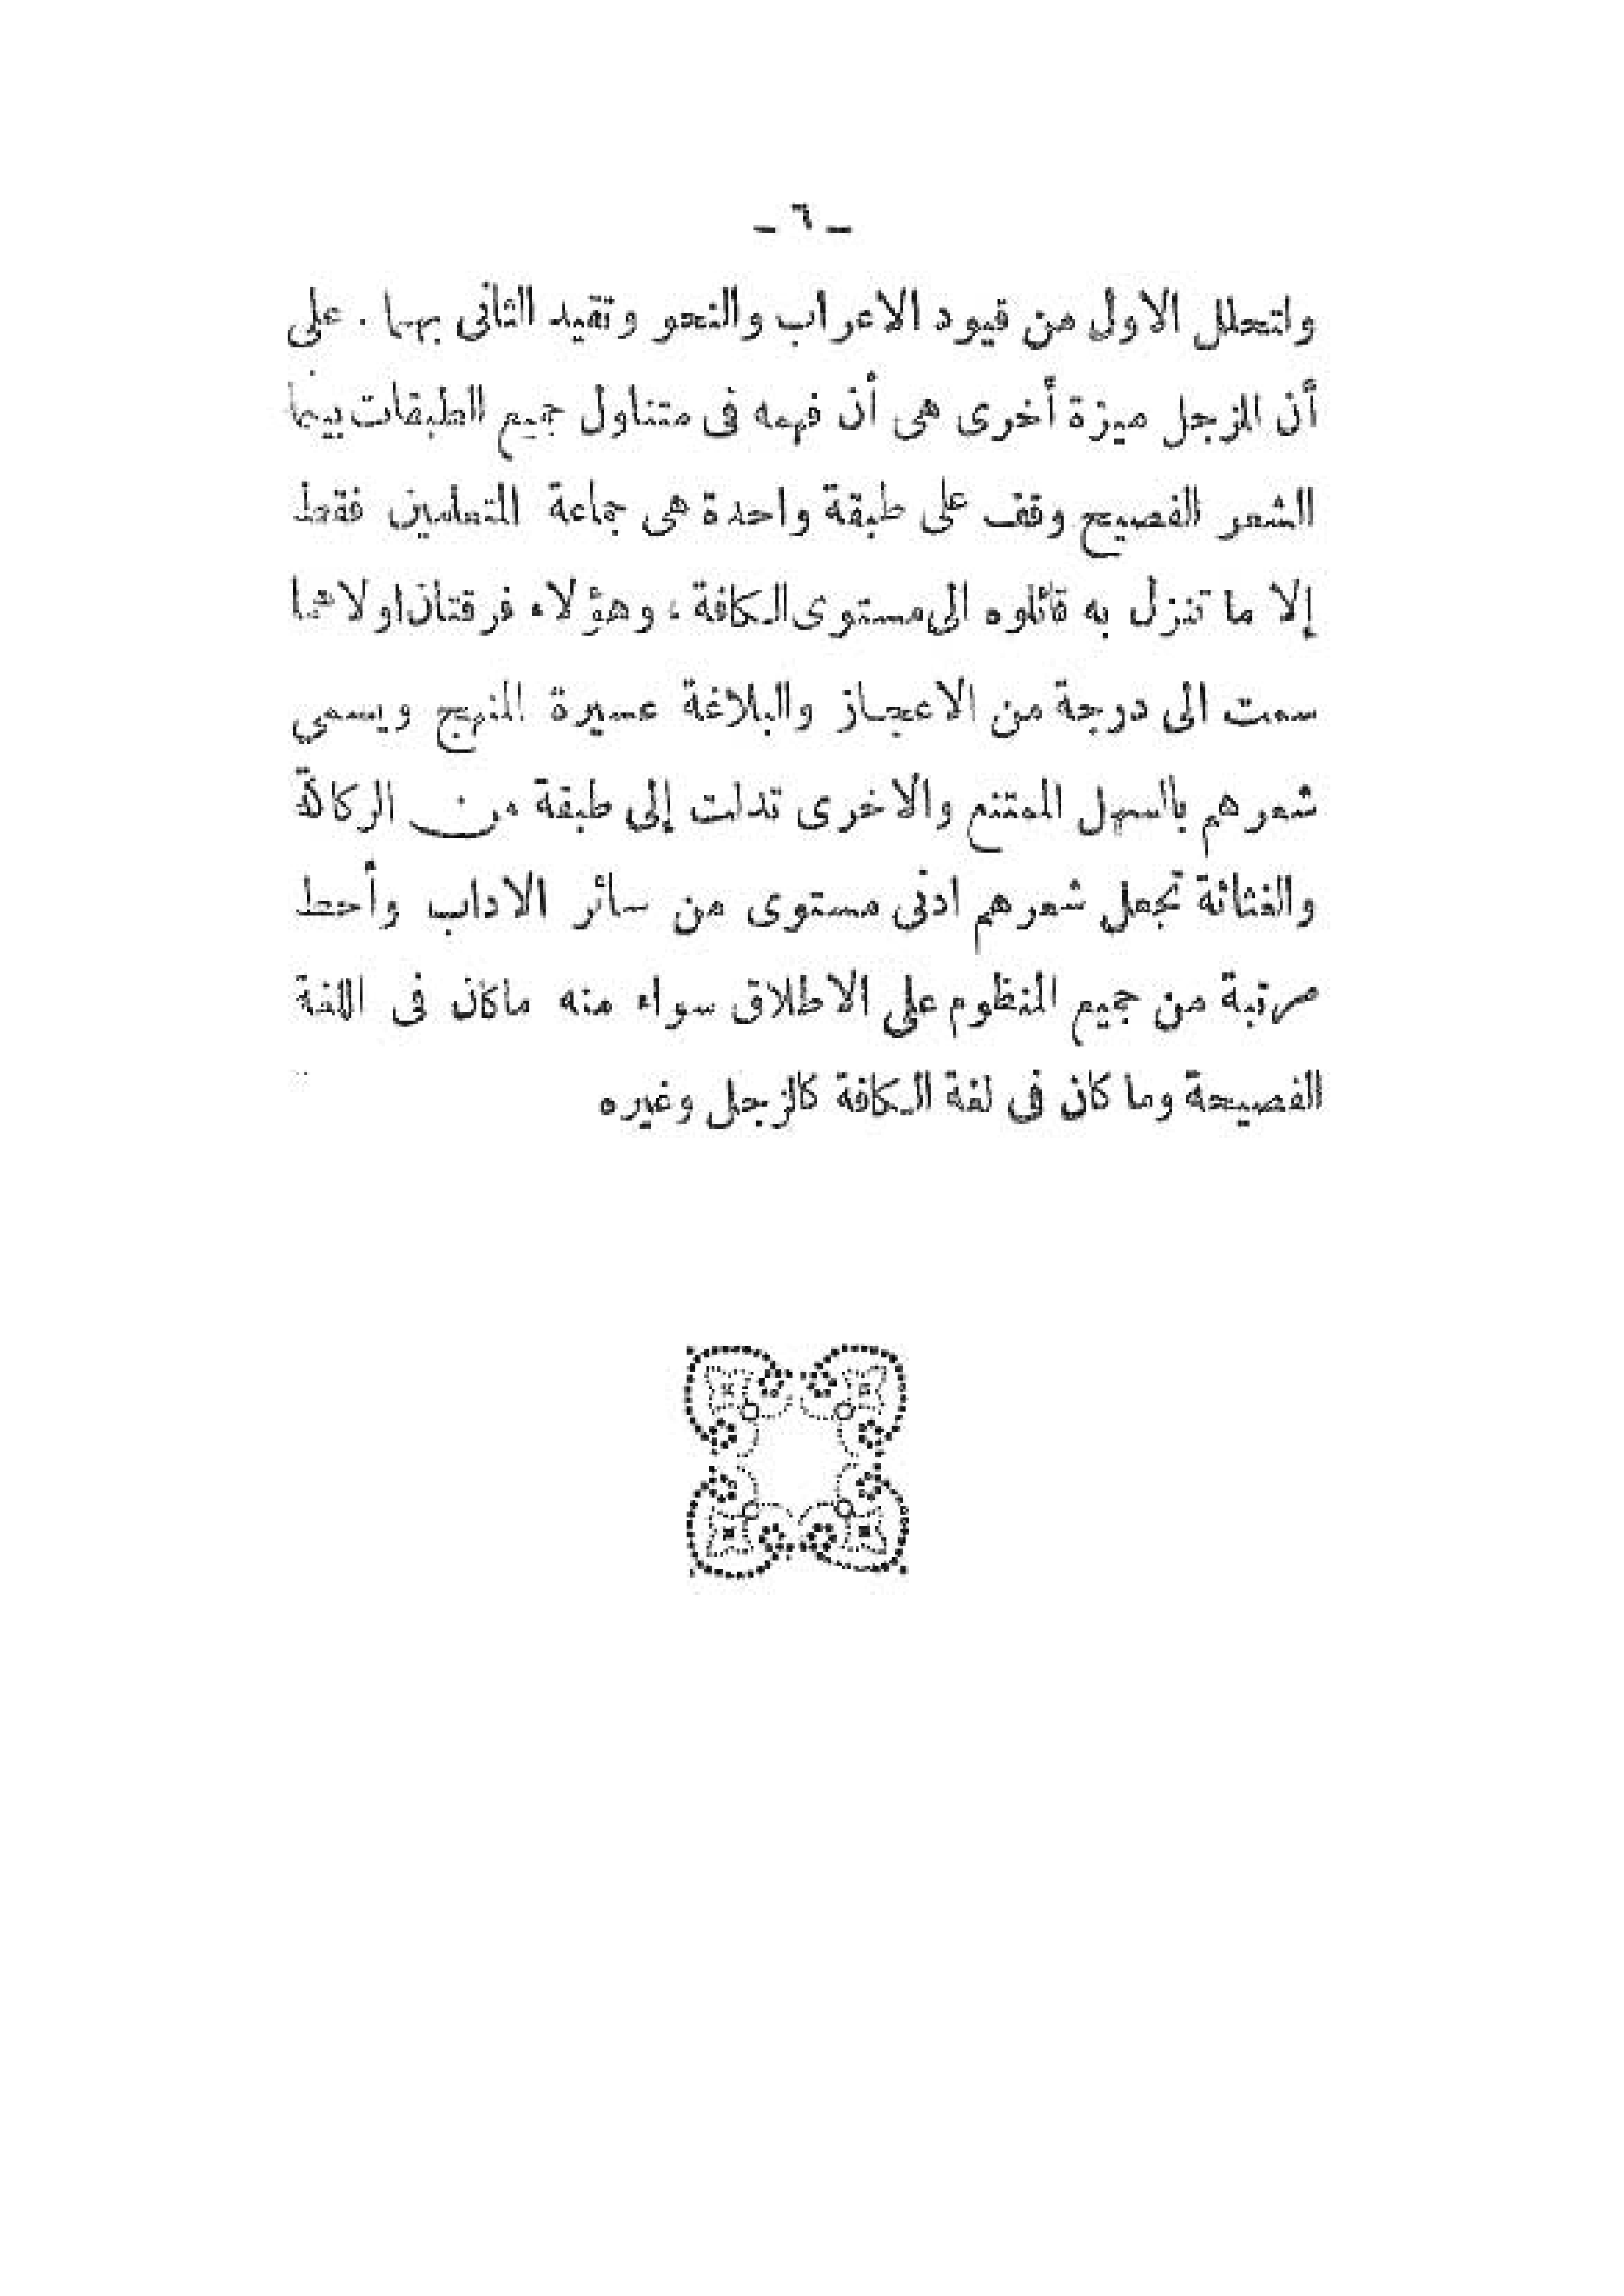 ـ ٦ ـ
ولتحلل الاول من قيود الاعراب والنحو وتقيد الثانى بهما . على
أن للزجل ميزة أخرى هى أن فهمه فى متناول جميع الطبقات بينما
الشعر الفصيح وقف على طبقة واحدة هى جماعة المتعلمين فقط
إلا ما تنزل به قائلوه الى مستوى الكافة ، وهؤلاء فرقتان اولاهما
سمت الى درجة من الاعجاز والبلاغة عسيرة المنهج ويسمى
شعرهم بالسهل الممتنع والاخرى تدلت إلى طبقة من الركاكة
والغثاثة تجعل شعرهم ادنى مستوى من سائر الاداب وأحط
مرتبة من جميع المنظوم على الاطلاق سواء منه ماكان فى اللغة
الفصيحة وما كان فى لغة الكافة كالزجل وغيره